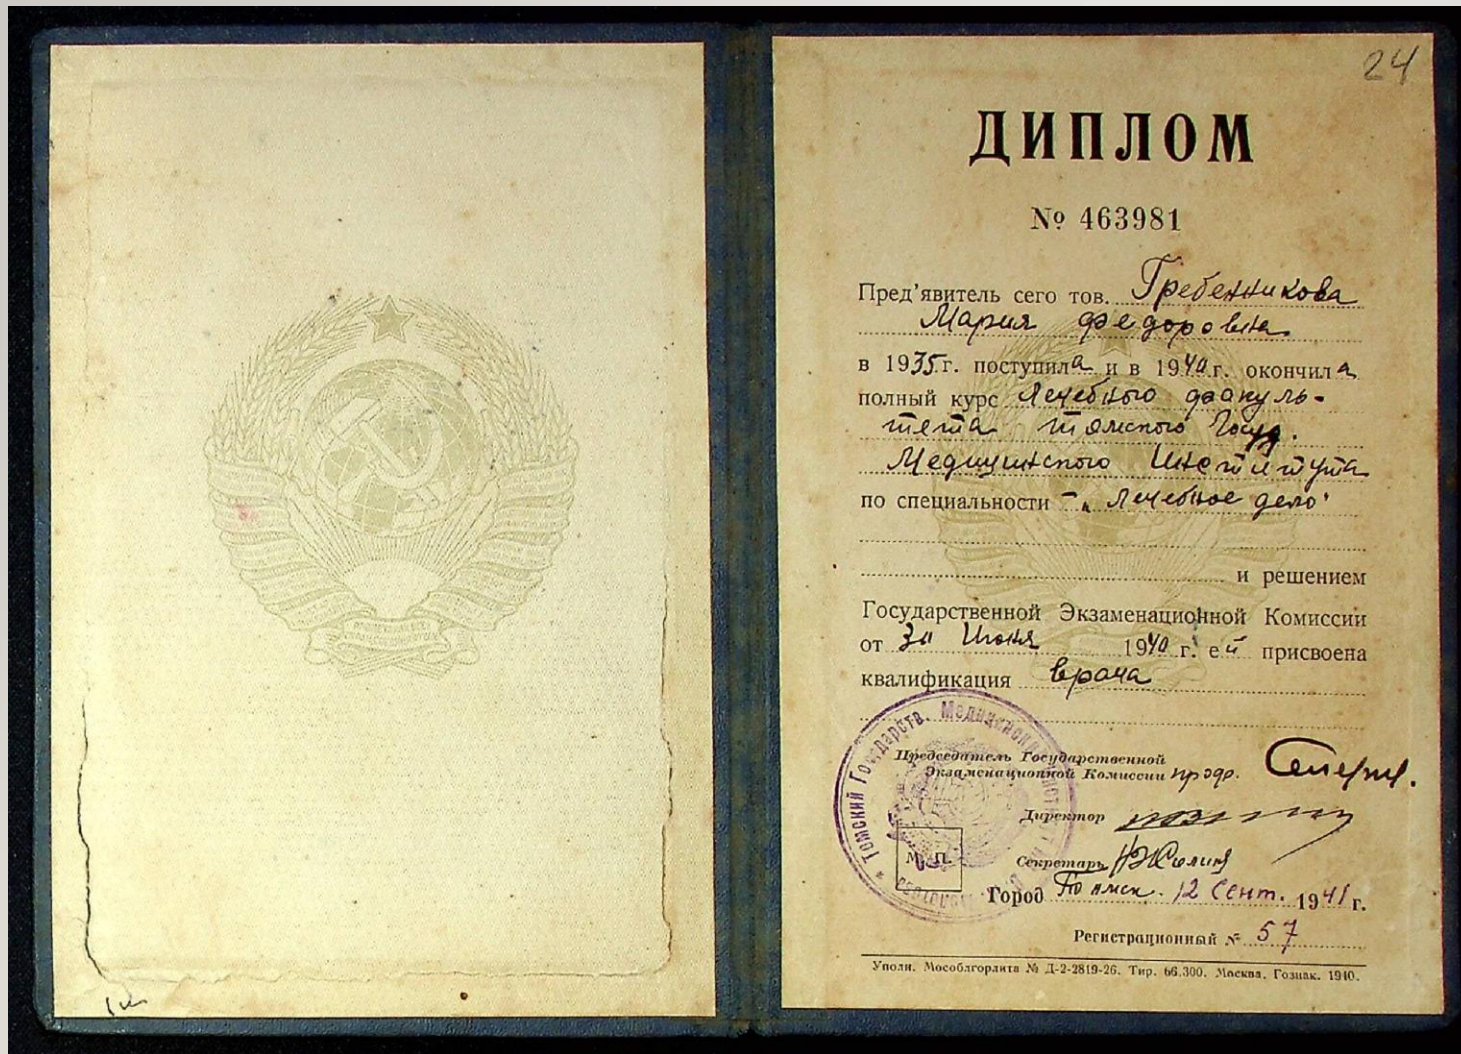 24
ДИПЛОМ
№ 463981
Пред'явитель сего тов. Гребенникова
Мария Федоровна
в 1935 г. поступила и в 1940 г. окончила
полный курс Лечебного факуль-
тета Томского Госуд.
Медицинского Института
по специальности - „Лечебное дело"
и решением
Государственной Экзаменационной Комиссии
от 30 Июня 1940 г. ей присвоена
квалификация врача
Томский Государств. Медицинский Институт
Председатель Государственной
Экзаменационной Комиссии проф.
Директор
Секретарь
М. П.
Город Томск. 12 Сент. 1941 г.
Регистрационный № 57
Уполн. Мособлгорлита № Д-2-2819-26. Тир. 66.300. Москва. Гознак. 1940.